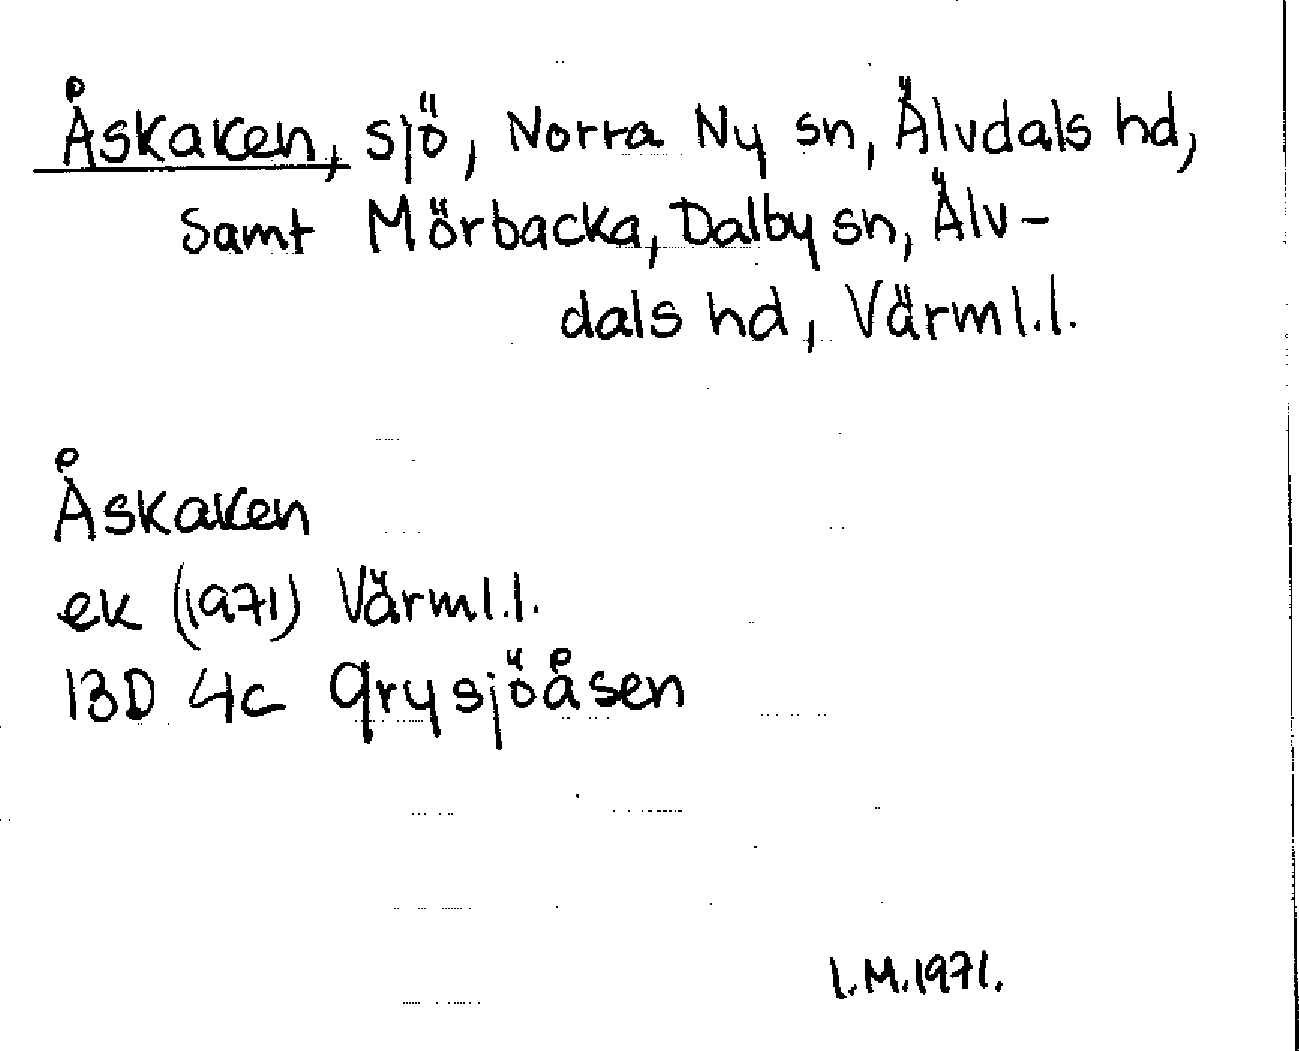 Åskaken, sjö, Norra Ny sn, Älvdals hd,
samt Mörbacka, Dalby sn, Älv-
dals hd, Värml.l.
Åskaken
ek (1971) Värml.l.
13D 4c Grysjöåsen
L.M.1971.